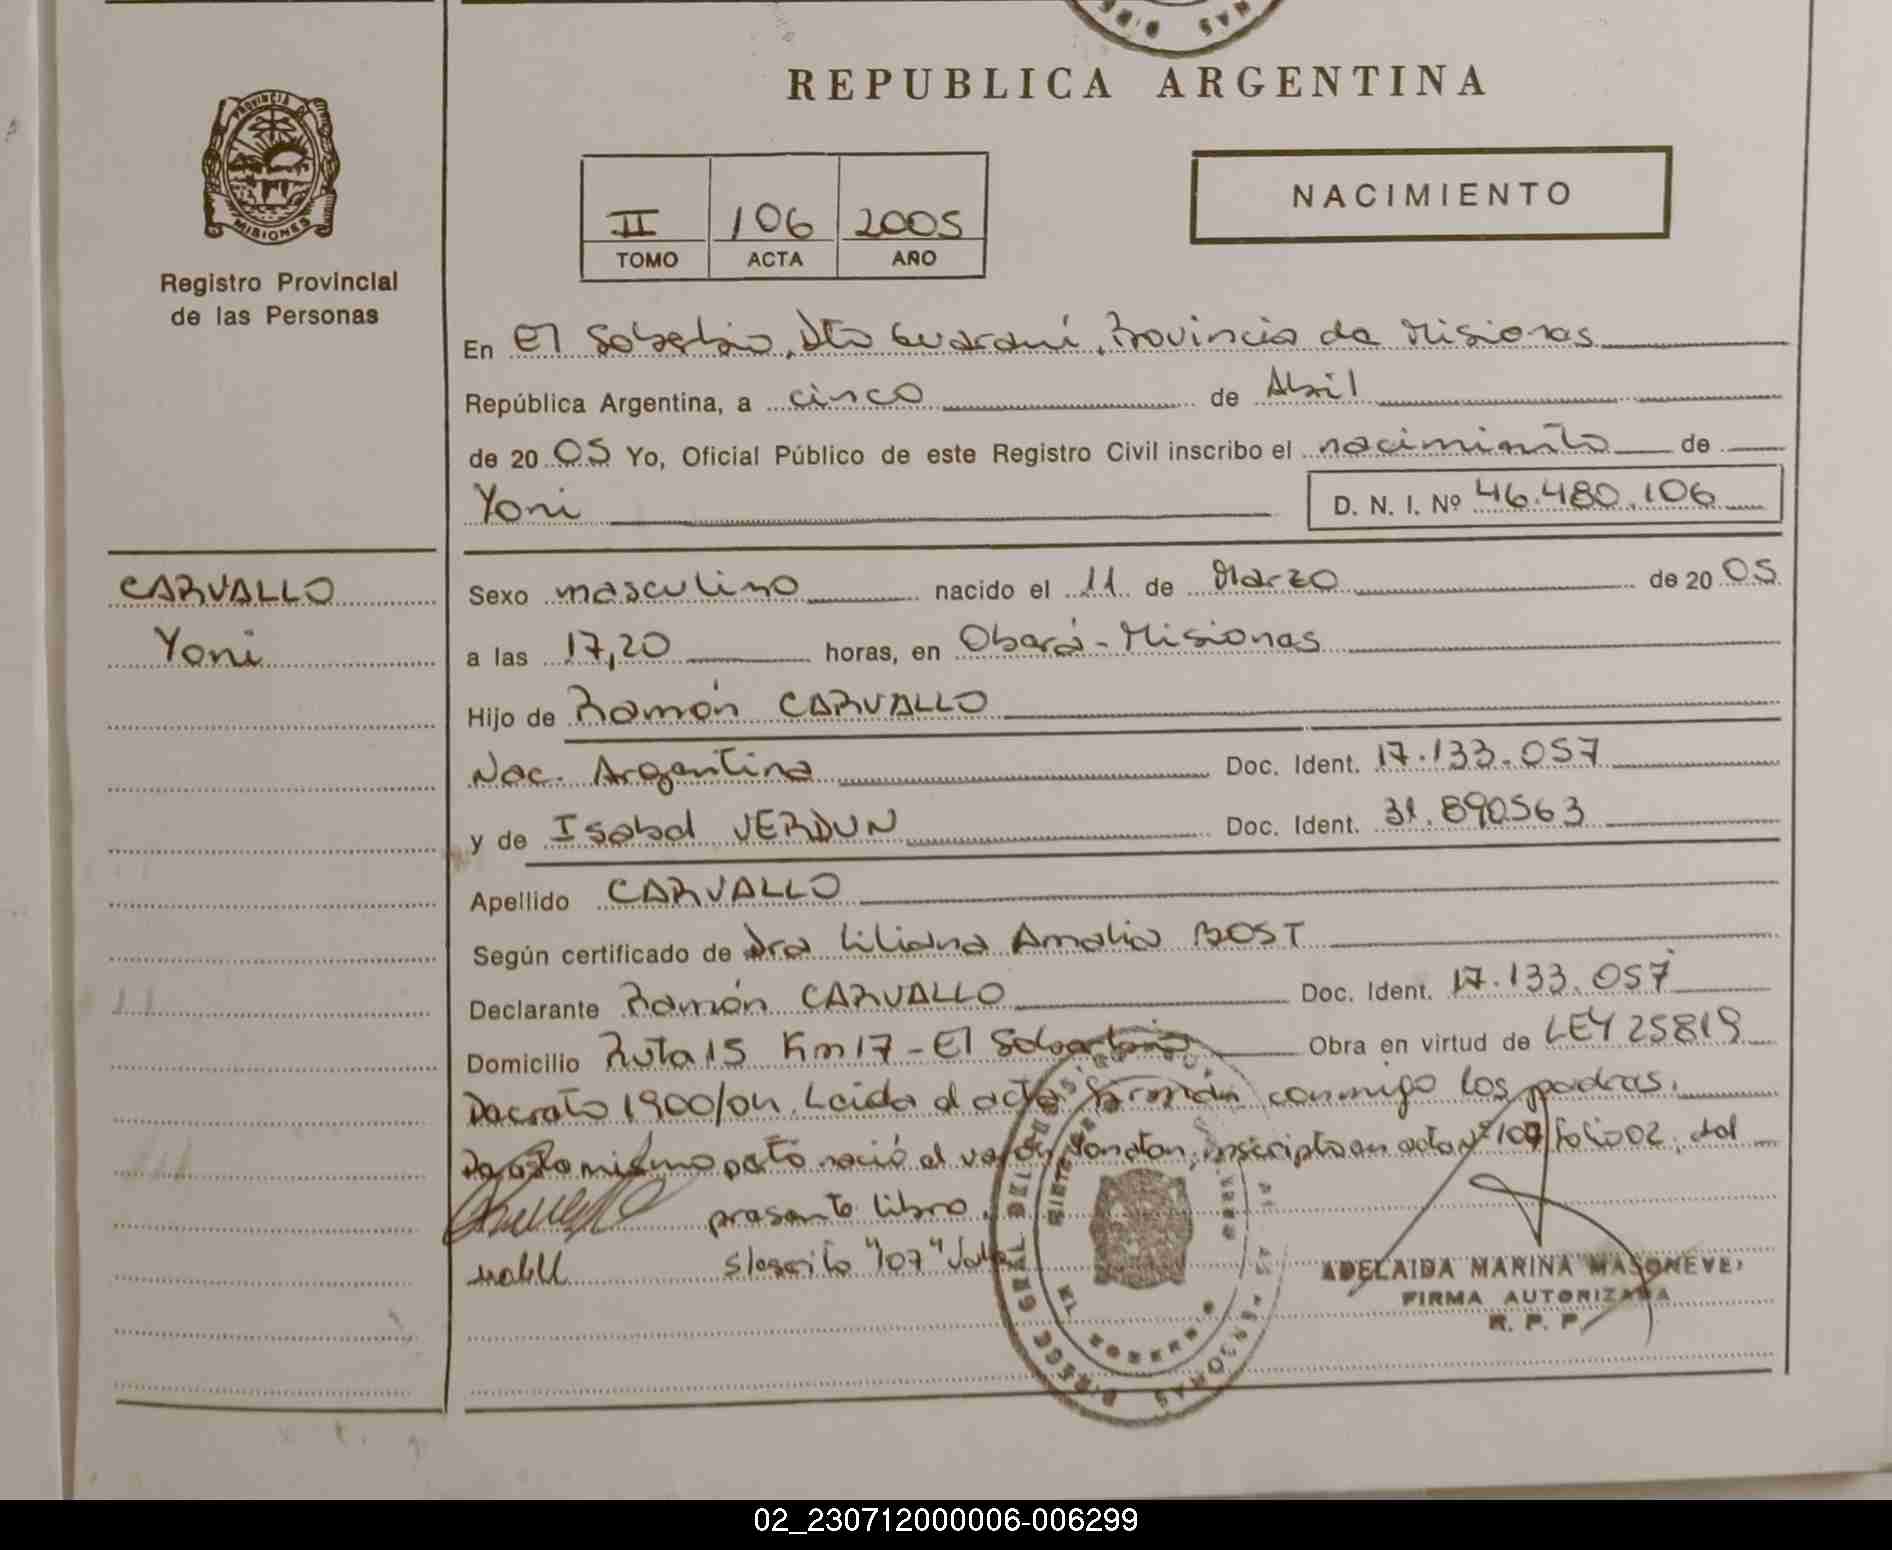 REPUBLICA ARGENTINA
PROVINCIA DE
MISIONES
Registro Provincial
de las Personas
II 106 2005
TOMO ACTA AÑO
NACIMIENTO
En El Soberbio, Dto Guaraní, Provincia de Misiones
República Argentina, a cinco de Abril
de 20 05 Yo, Oficial Público de este Registro Civil inscribo el nacimiento de
Yoni D. N. I. Nº 46.480.106
CARVALLO
Yoni
Sexo masculino nacido el 11 de Marzo de 20 05
a las 17,20 horas, en Oberá - Misiones
Hijo de Ramón CARVALLO
Nac. Argentina Doc. Ident. 17.133.057
y de Isabel VERDUN Doc. Ident. 31.890563
Apellido CARVALLO
Según certificado de Dra Liliana Amalia BOST
Declarante Ramón CARVALLO Doc. Ident. 17.133.057
Domicilio Ruta 15 Km 17 - El Soberbio Obra en virtud de LEY 25819
Decreto 1900/04. Leida el acta firman conmigo los padres.
De este mismo parto nació el varón Yonatan, inscripto en acta Nº 107 folio 02, del
presente libro.
s/escrito "107" Vale
ADELAIDA MARINA MASONEVE
FIRMA AUTORIZADA
R. P. P.
02_230712000006-006299